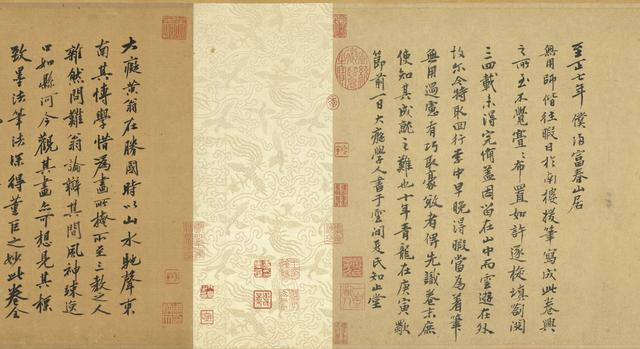 至正七年僕歸富春山居
無用師偕往暇日於南樓援筆寫成此卷興
之所至不覺亹亹布置如許逐旋填劄閱
三四載未得完備蓋因留在山中而雲遊在外
故尔今特取回行李中早晚得暇當為着筆
無用過慮有巧取豪敚者俾先識卷末庶
使知其成就之難也十年青龍在庚寅歜
節前一日大癡學人書于雲間夏氏知止堂
大癡黃翁在勝國時以山水馳聲東
南其博學惜為畫所掩所至三教之人
雜然問難翁論辯其間風神竦逸
口如懸河今觀其畫亦可想見其標
致墨法筆法深得董巨之妙此卷全